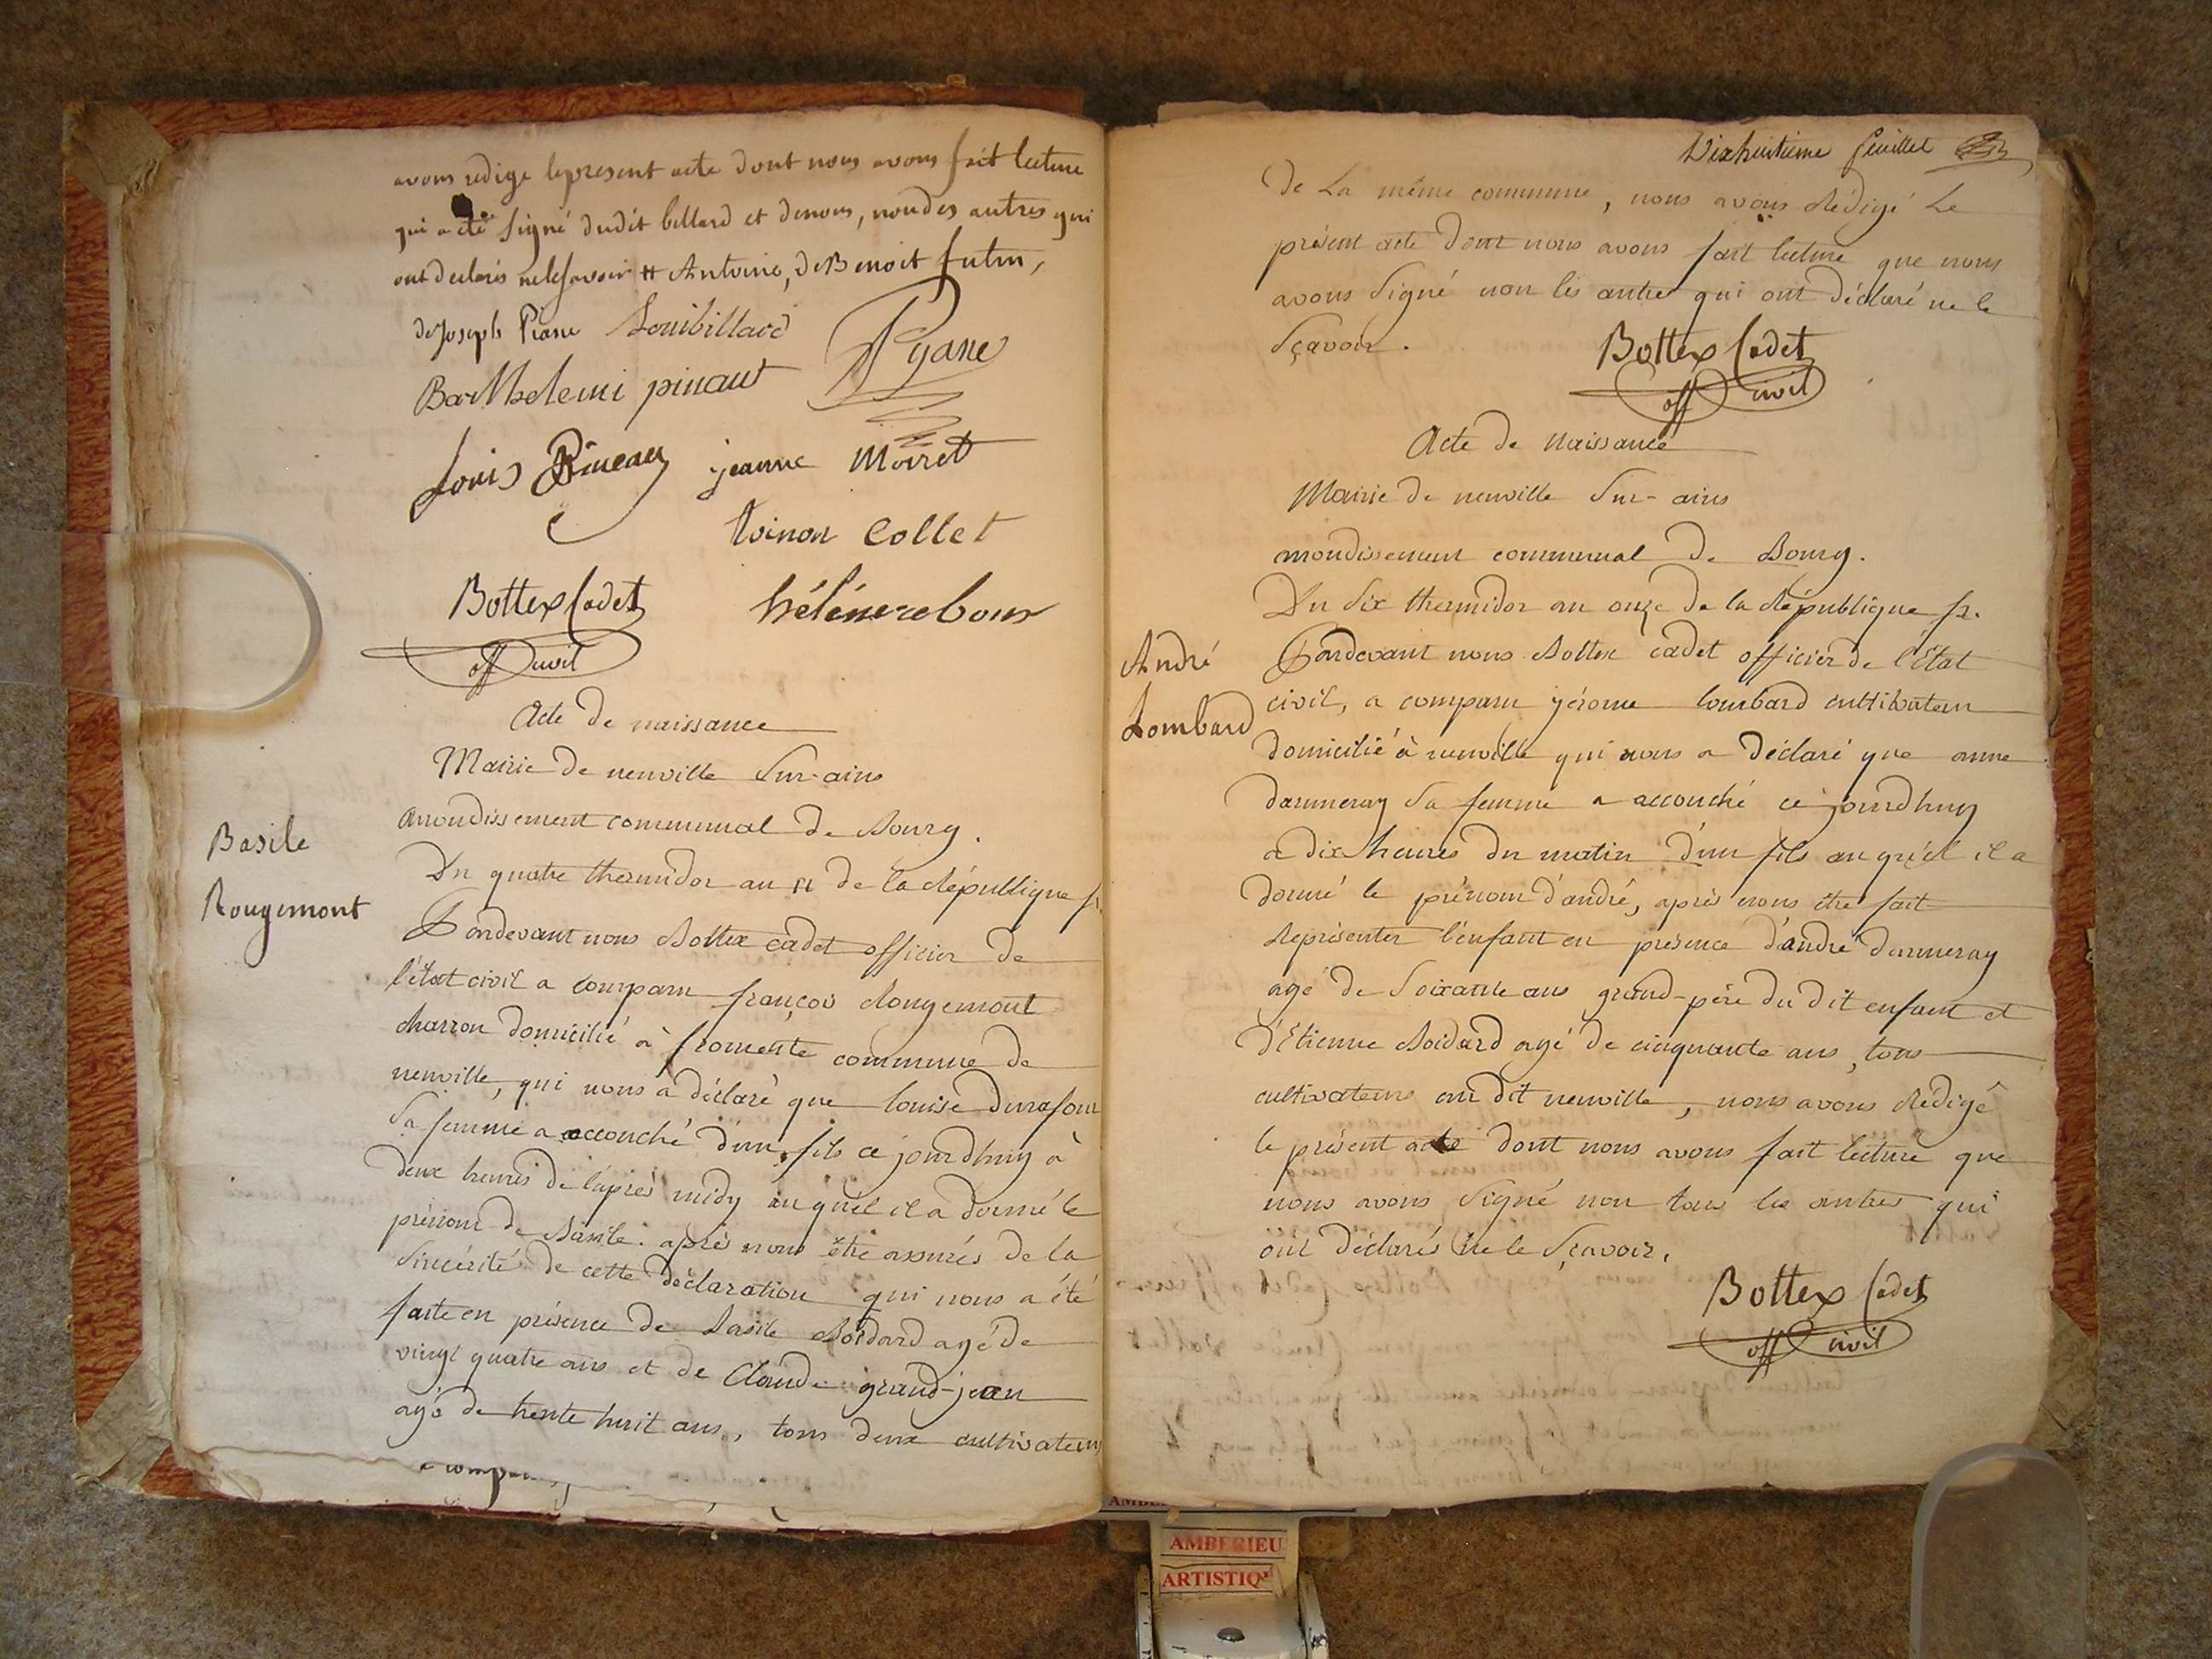 avons redigé le present acte dont nous avons fait lecture
qui a été signé dudit billard et denous, non des autres qui
ont declarés nele savoir # Antoine, de Benoit
de Joseph Piane Louibillard
Pyane
Barthelemi pinaut
Louis Pineau jeanne Moiret
toinon Collet
Bottex Cadet
off civil
Acte de naissance
Mairie de neuville Sur-ains
arrondissement communal de Bourg.
Basile
Rougemont
Du quatre thermidor an 11 de la République fr.
Pardevant nous Bottex cadet officier de
l'état civil a comparu françois Rougemont
charron domicilié à fromente commune de
neuville, qui nous a déclaré que louise durafour
sa femme a accouché d'un fils ce jourdhuy à
deux heures de l'après midy auquel il a donné le
prénom de Basile. après nous être assurés de la
sincérité de cette déclaration qui nous a été
faite en présence de Basile Boidard agé de
vingt quatre ans et de Claude grand-jean
agé de trente huit ans, tous deux cultivateurs
Dixhuitieme feuillet
de La même commune, nous avons Rédigé Le
présent acte dont nous avons fait lecture que nous
avons signé non les autres qui ont déclaré ne le
sçavoir.
Bottex Cadet
off civil
Acte de Naissance
Mairie de neuville Sur-ains
arrondissement communal de Bourg.
Du six thermidor an onze de la République fr.
André
Lombard
Pardevant nous Bottex cadet officier de l'État
civil, a comparu jérome lombard cultivateur
domicilié à neuville qui nous a déclaré que anne
darmeray sa femme a accouché ce jourdhuy
a dix heures du matin d'un fils auquel il a
donné le prénom d'andré, après nous être fait
Représenter l'enfant en présence d'andré darmeray
agé de soixante ans grand-père du dit enfant et
d'Etienne Boidard agé de cinquante ans, tous
cultivateurs au dit neuville, nous avons Rédigé
le présent acte dont nous avons fait lecture que
nous avons signé non tous les autres qui
ont déclarés ne le sçavoir.
Bottex Cadet
off civil
AMBERIEU
ARTISTIQ